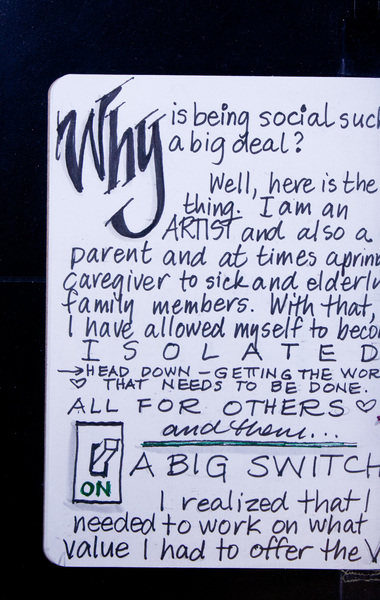 Why is being social such
a big deal?
Well, here is the
thing. I am an
ARTIST and also a
parent and at times a
caregiver to sick and elderly
family members. With that,
I have allowed myself to
ISOLATED
→HEAD DOWN - GETTING THE
♡ THAT NEEDS TO BE DONE.
ALL FOR OTHERS ♡
and then...
ON
A BIG SWITCH
I realized that I
needed to work on what
value I had to offer the